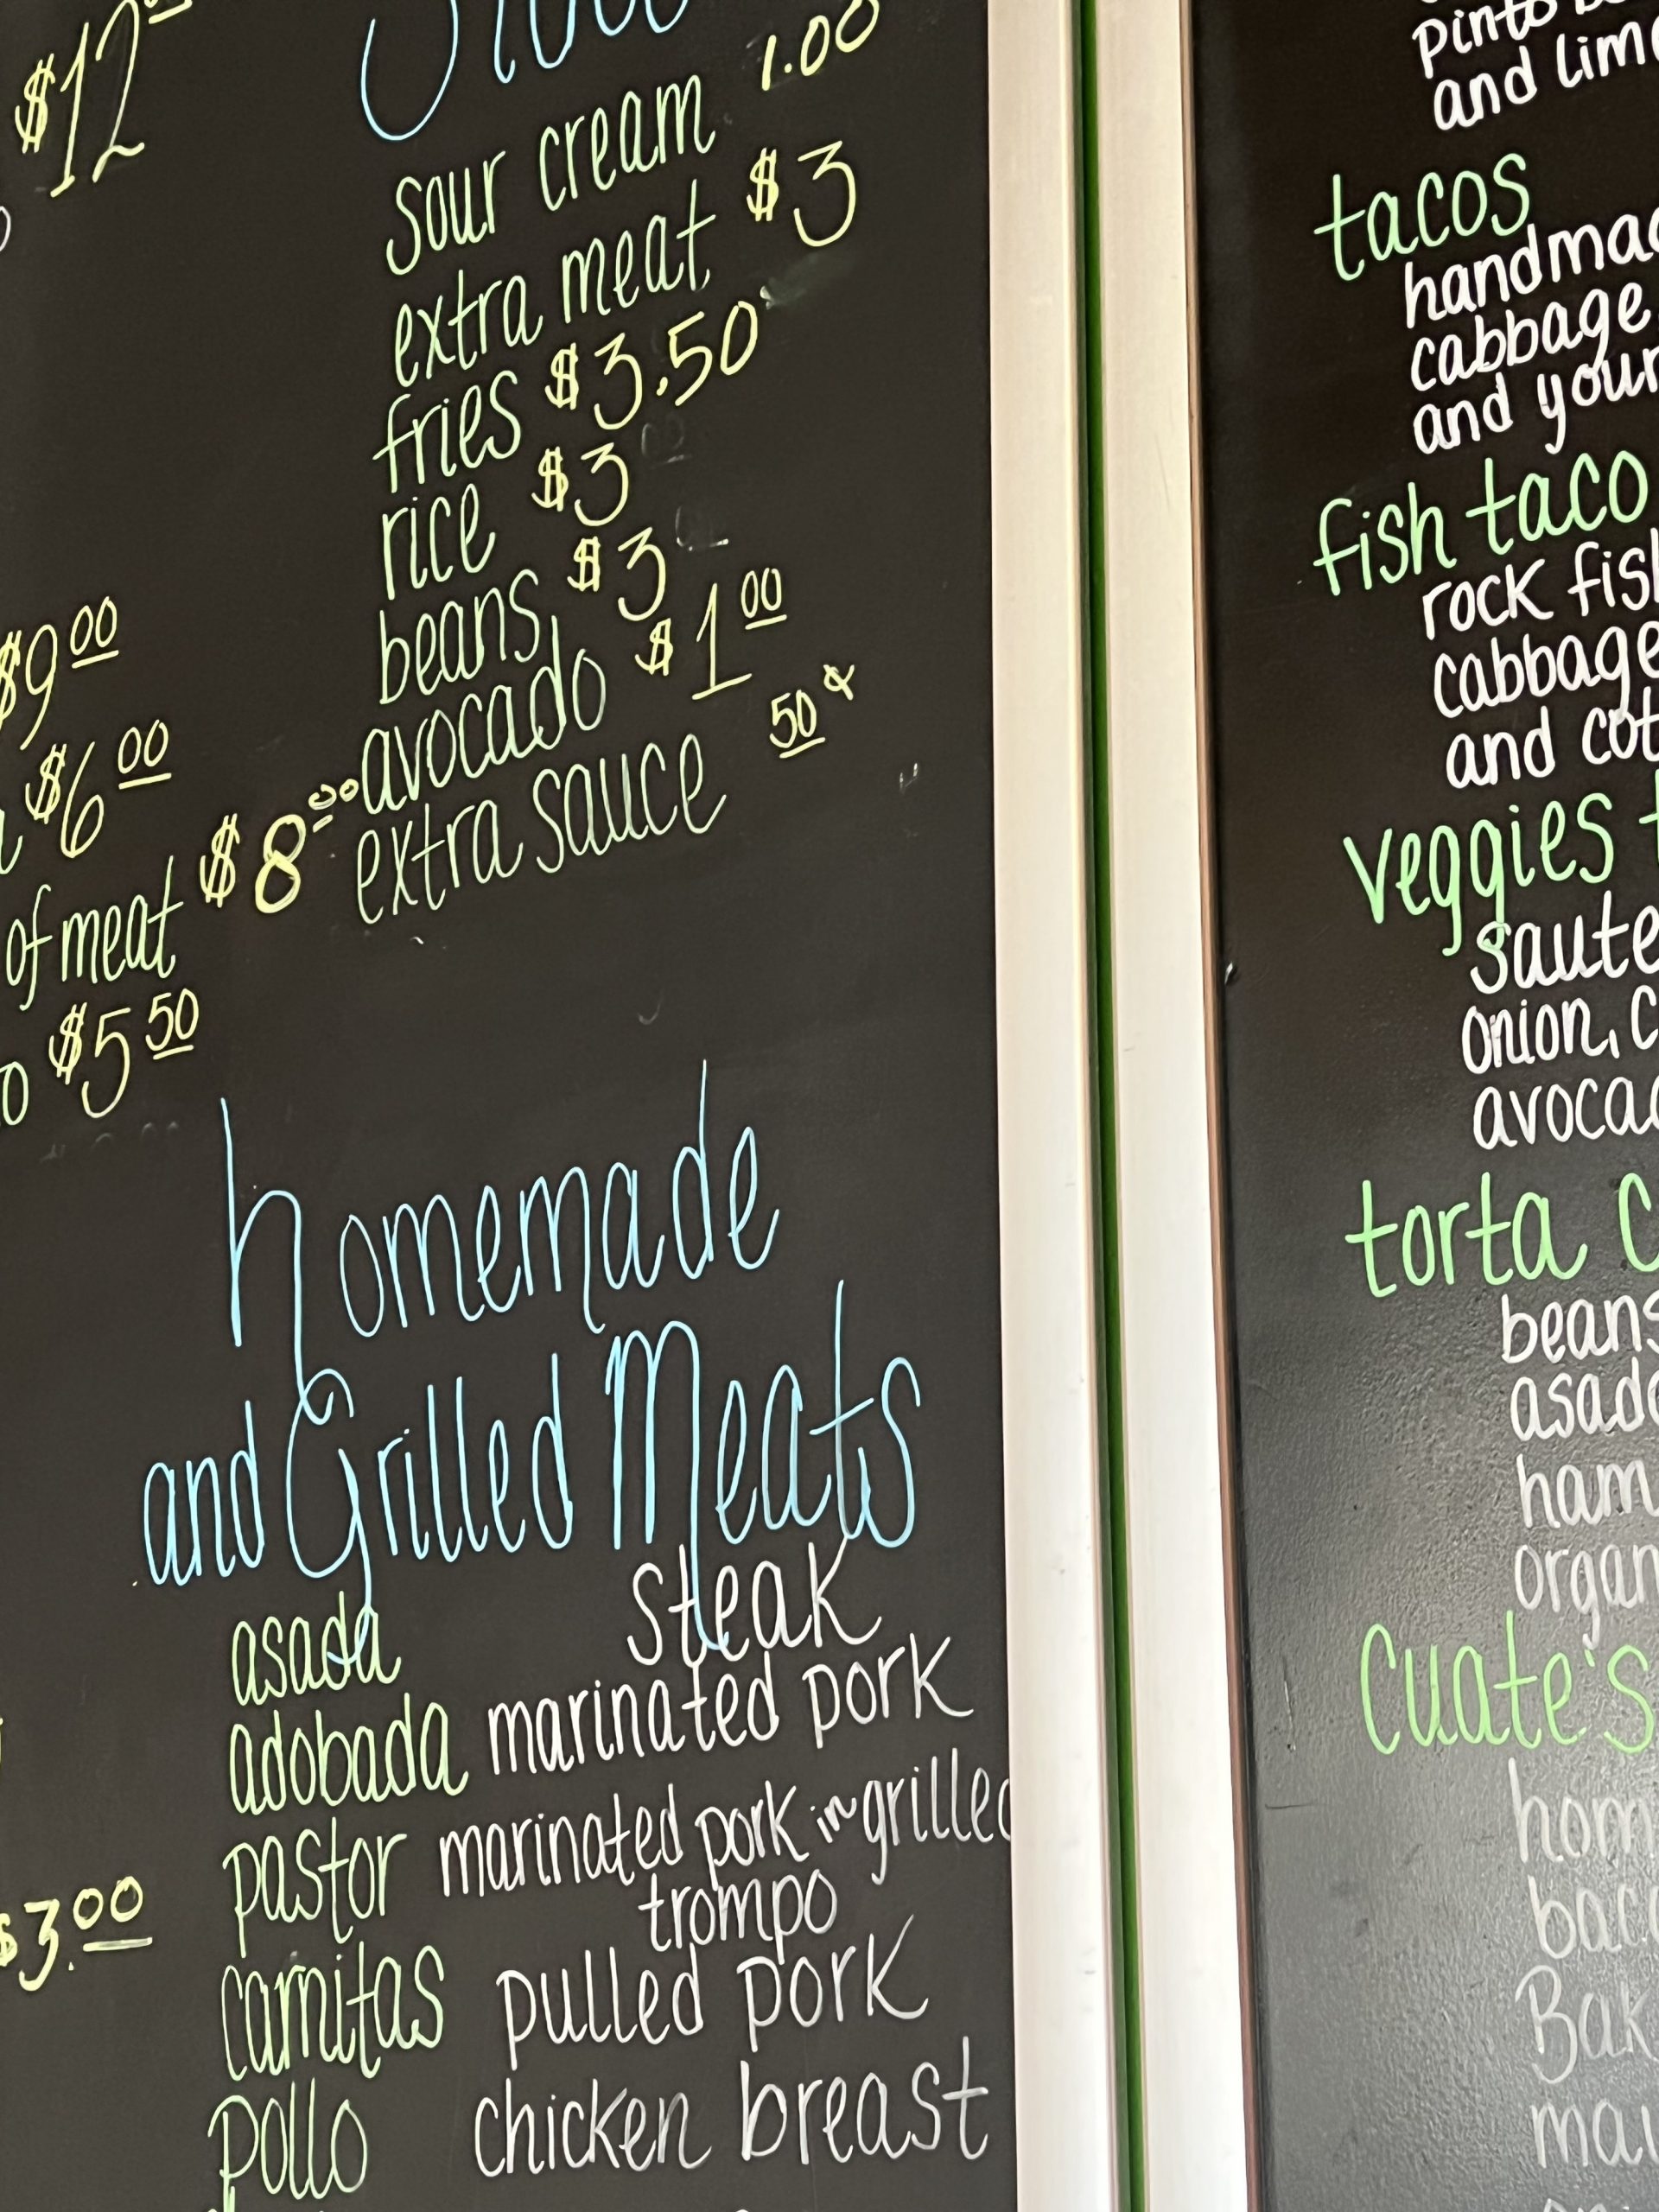 $12
sour cream 1.00
extra meat $3
fries $3.50
rice $3
beans $3
avocado $1 00
extra sauce 50¢
$9 00
$6 00
of meat $8.00
$5 50
homemade
and Grilled Meats
asada steak
adobada marinated pork
pastor marinated pork in grilled
trompo
carnitas pulled pork
pollo chicken breast
$3.00
and lim
tacos
handmad
cabbage
and your
fish taco
rock fish
cabbage
and cot
veggies t
saute
onion, c
avocad
torta c
beans
asad
ham
organ
Cuate's
hom
bac
Bak